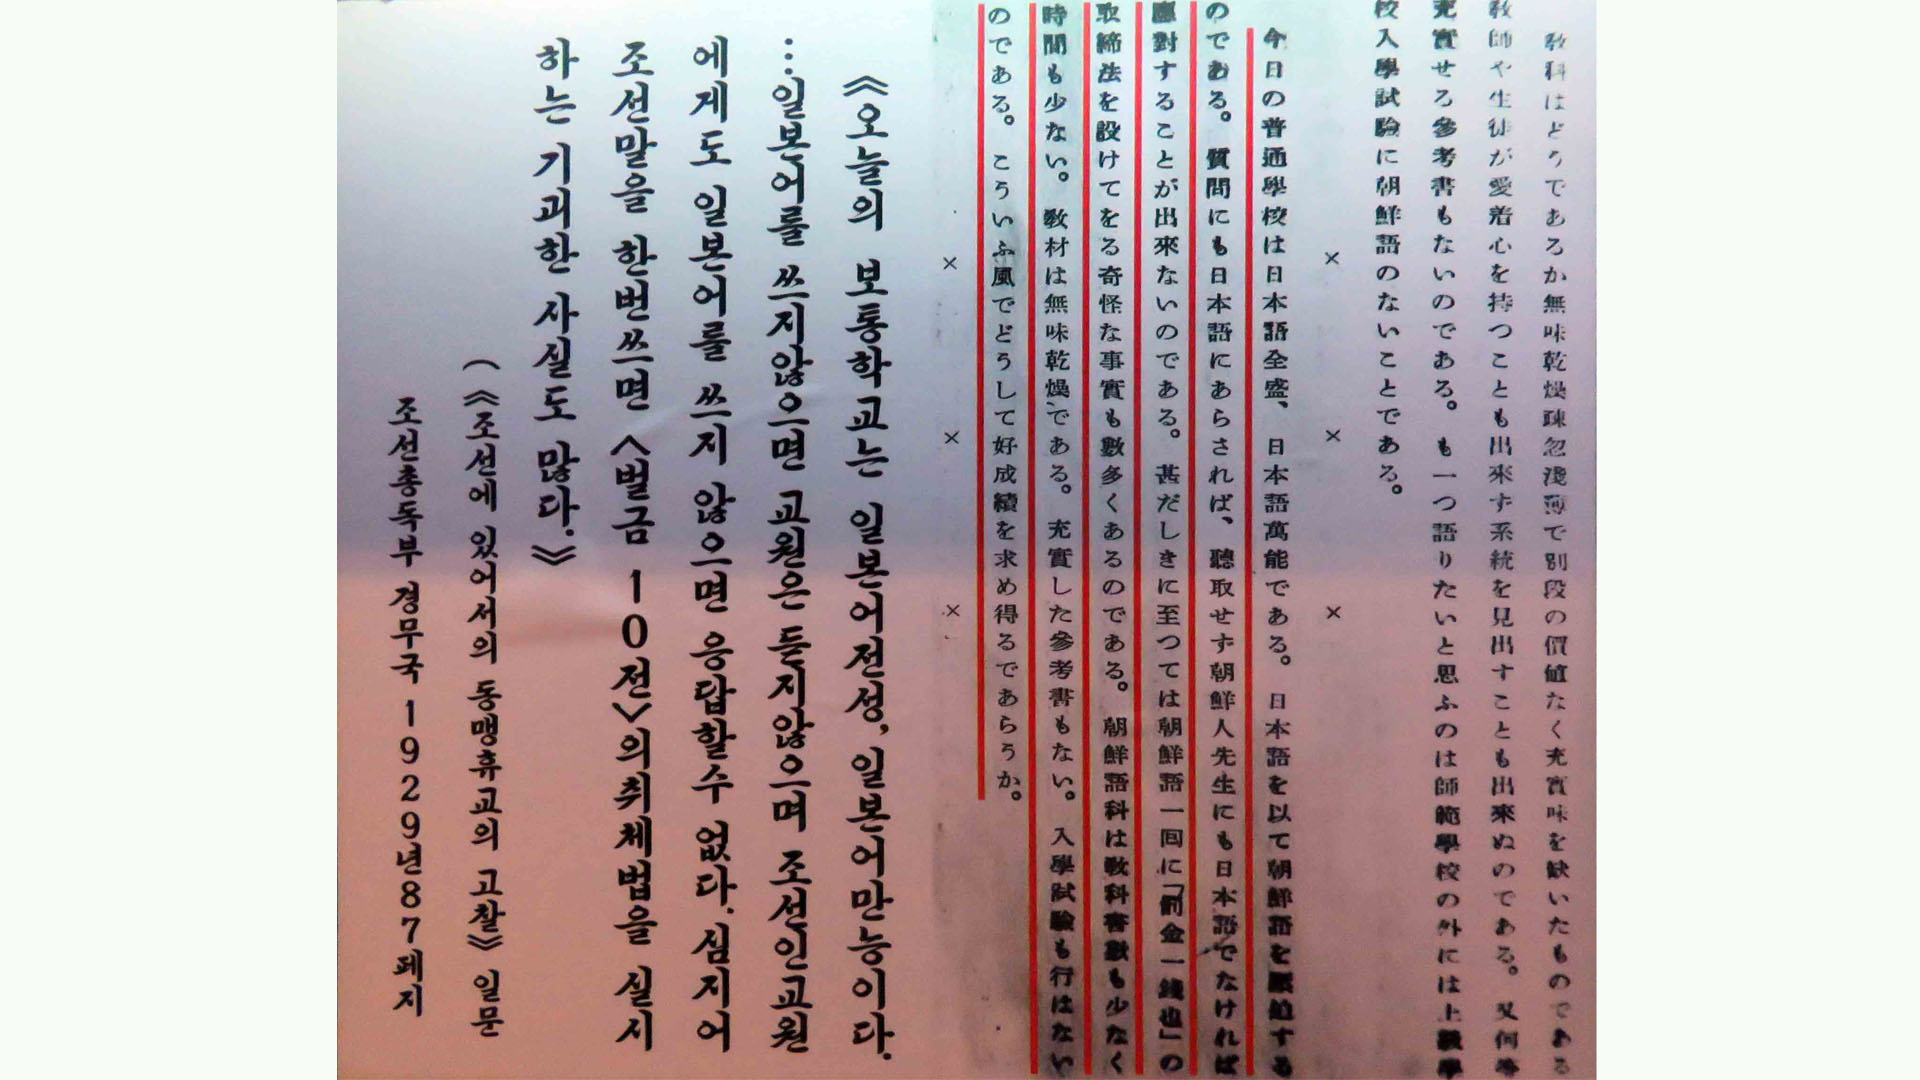 敎科はどうであるか無味乾燥疎忽淺薄で別段の價値なく充實味を缺いたものである
敎師や生徒が愛着心を持つことも出來ず系統を見出すことも出來ぬのである。又何等
充實せる參考書もないのである。も一つ語りたいと思ふのは師範學校の外には上級學
校入學試驗に朝鮮語のないことである。
× × ×
今日の普通學校は日本語全盛、日本語萬能である。日本語を以て朝鮮語を壓迫する
のである。質問にも日本語にあらされば、聽取せず朝鮮人先生にも日本語でなければ
應對することが出來ないのである。甚だしきに至つては朝鮮語一回に「罰金一錢也」の
取締法を設けてをる奇怪な事實も數多くあるのである。朝鮮語科は敎科書數も少なく
時間も少ない。敎材は無味乾燥である。充實した參考書もない。入學試驗も行はない
のである。こういふ風でどうして好成績を求め得るであらうか。
× × ×
《오늘의 보통학교는 일본어전성, 일본어만능이다.
…일본어를 쓰지않으면 교원은 듣지않으며 조선인교원
에게도 일본어를 쓰지 않으면 응답할수 없다. 심지어
조선말을 한번쓰면 <벌금 10전>의취체법을 실시
하는 기괴한 사실도 많다.》
(《조선에 있어서의 동맹휴교의 고찰》 일문
조선총독부 경무국 1929년87페지